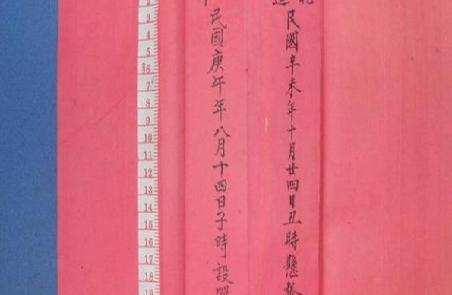 民國辛未年十月廿四日丑時懸
民國庚午年八月十四日子時設
2
3
4
5
6
7
8
9
10
11
12
13
14
15
16
17
18